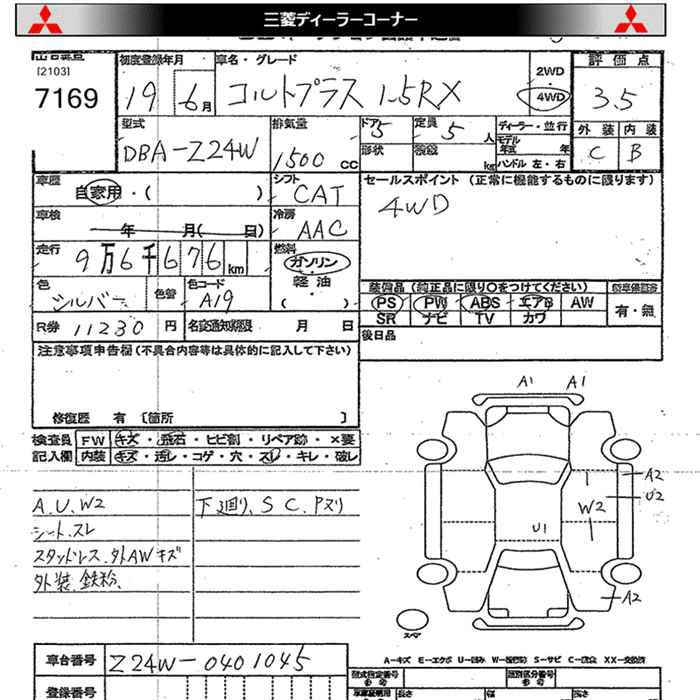 三菱ディーラーコーナー
[2103]
7169
初度登録年月
19 6月
車名・グレード
コルトプラス 1.5RX
2WD
4WD
評価点
3.5
外装 内装
C B
型式
DBA-Z24W
排気量
1500 cc
ドア
5
定員
5人
形状
積載
kg
ディーラー・並行
モデル年式 年
ハンドル 左・右
車歴
自家用・( )
シフト
CAT
セールスポイント (正常に機能するものに限ります)
4WD
車検
年 月( 日)
冷房
AAC
走行
9万6千676km
燃料
ガソリン
軽油
( )
色
シルバー
色替
色コード
A19
装備品 (純正品に限り○をつけてください)
PS PW ABS エアB AW
SR ナビ TV カワ
有・無
R券 11230 円
名変通知期限 月 日
後日品
注意事項申告欄 (不具合内容等は具体的に記入して下さい)
修復歴 有 〔箇所 〕
検査員
記入欄
FW キズ・飛石・ヒビ割・リペア跡・×要
内装 キズ・汚レ・コゲ・穴・スレ・キレ・破レ
A1 A1
A.U.W2
シート.スレ
スタッドレス.外AWキズ
外装.鉄粉.
下廻り、S C.Pヌリ
A2
U2
W2
U1
A2
スペア
A-キズ E-エクボ U-凹み W-補修跡 S-サビ C-腐食 XX-交換済
車台番号
Z24W-0401045
登録番号
型式指定番号
類別区分番号
長さ
幅
高さ